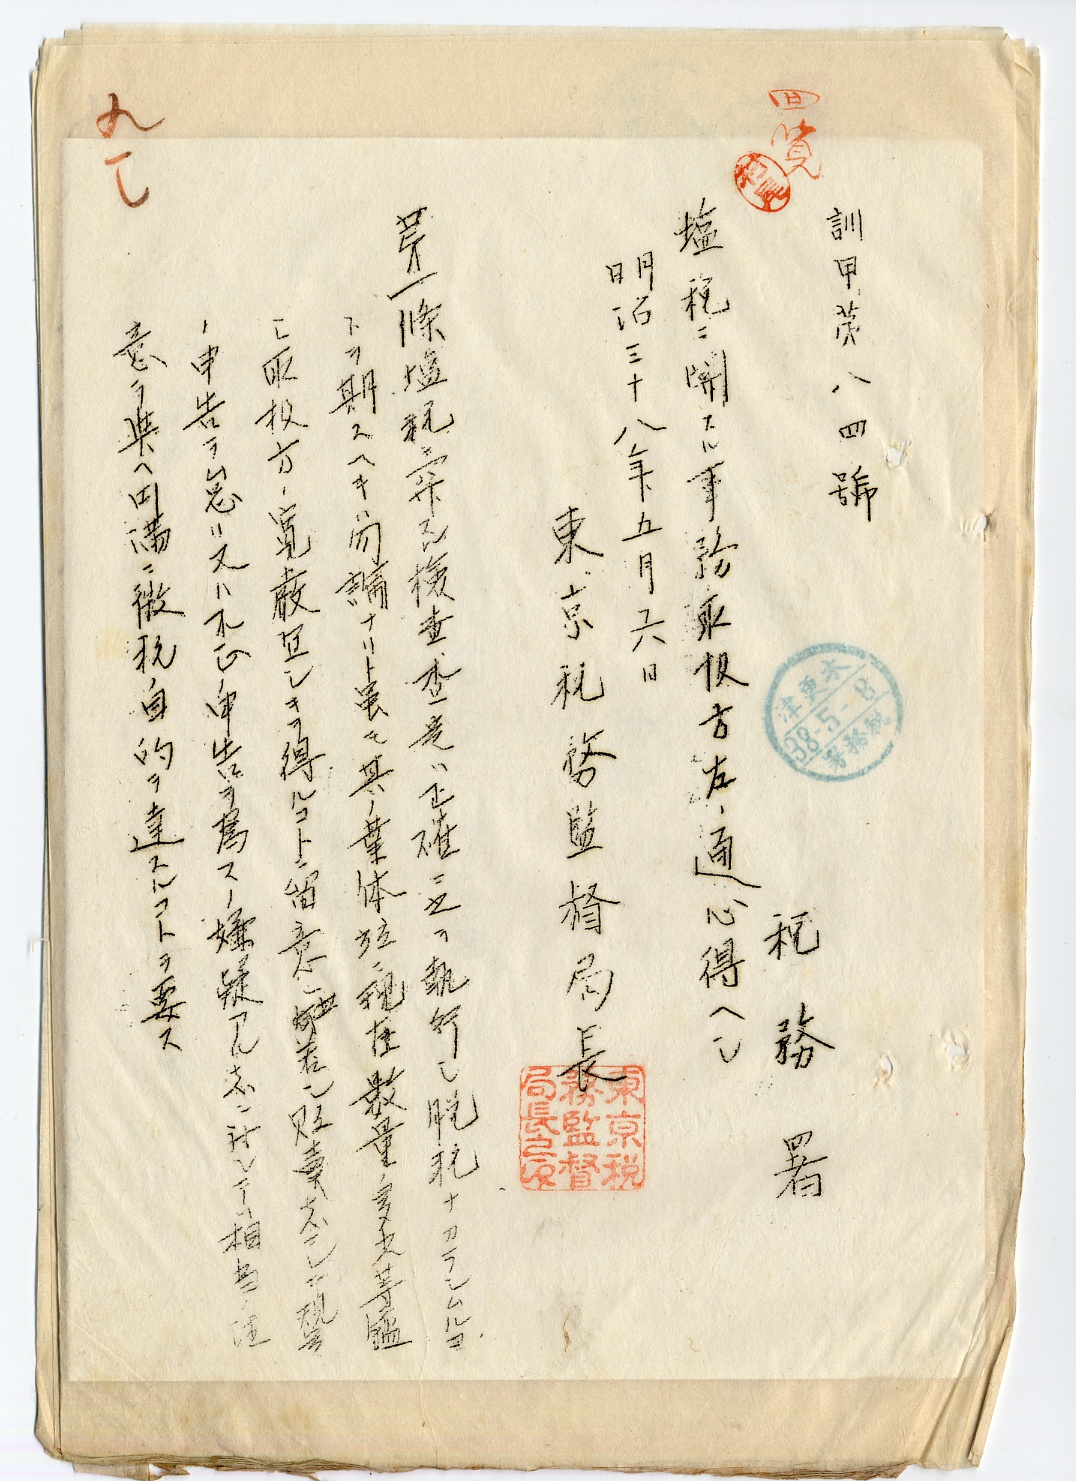 回覧
訓甲第八四號
税務署
塩税ニ関スル事務取扱方左ノ通心得ヘシ
明治三十八年五月六日
東京税務監督局長
東京税務監督局長之印
木更津
38.5-8
税務署
第一條塩税ニ関スル檢査査定ハ正確ニ之ヲ執行シ脱税ナカラシムルコ
トヲ期スヘキハ勿論ナリト雖モ其ノ業体並現在數量ノ多少等鑑
ミ取扱方ノ寛嚴宜シキヲ得ルコトニ留意シ若シ販賣者ニシテ
ノ申告ヲ怠リ又ハ不正ノ申告ヲ為スノ嫌疑アル者ニ対シテハ相当ノ注
意ヲ與ヘ円満ニ徴税ノ目的ヲ達スルコトヲ要ス